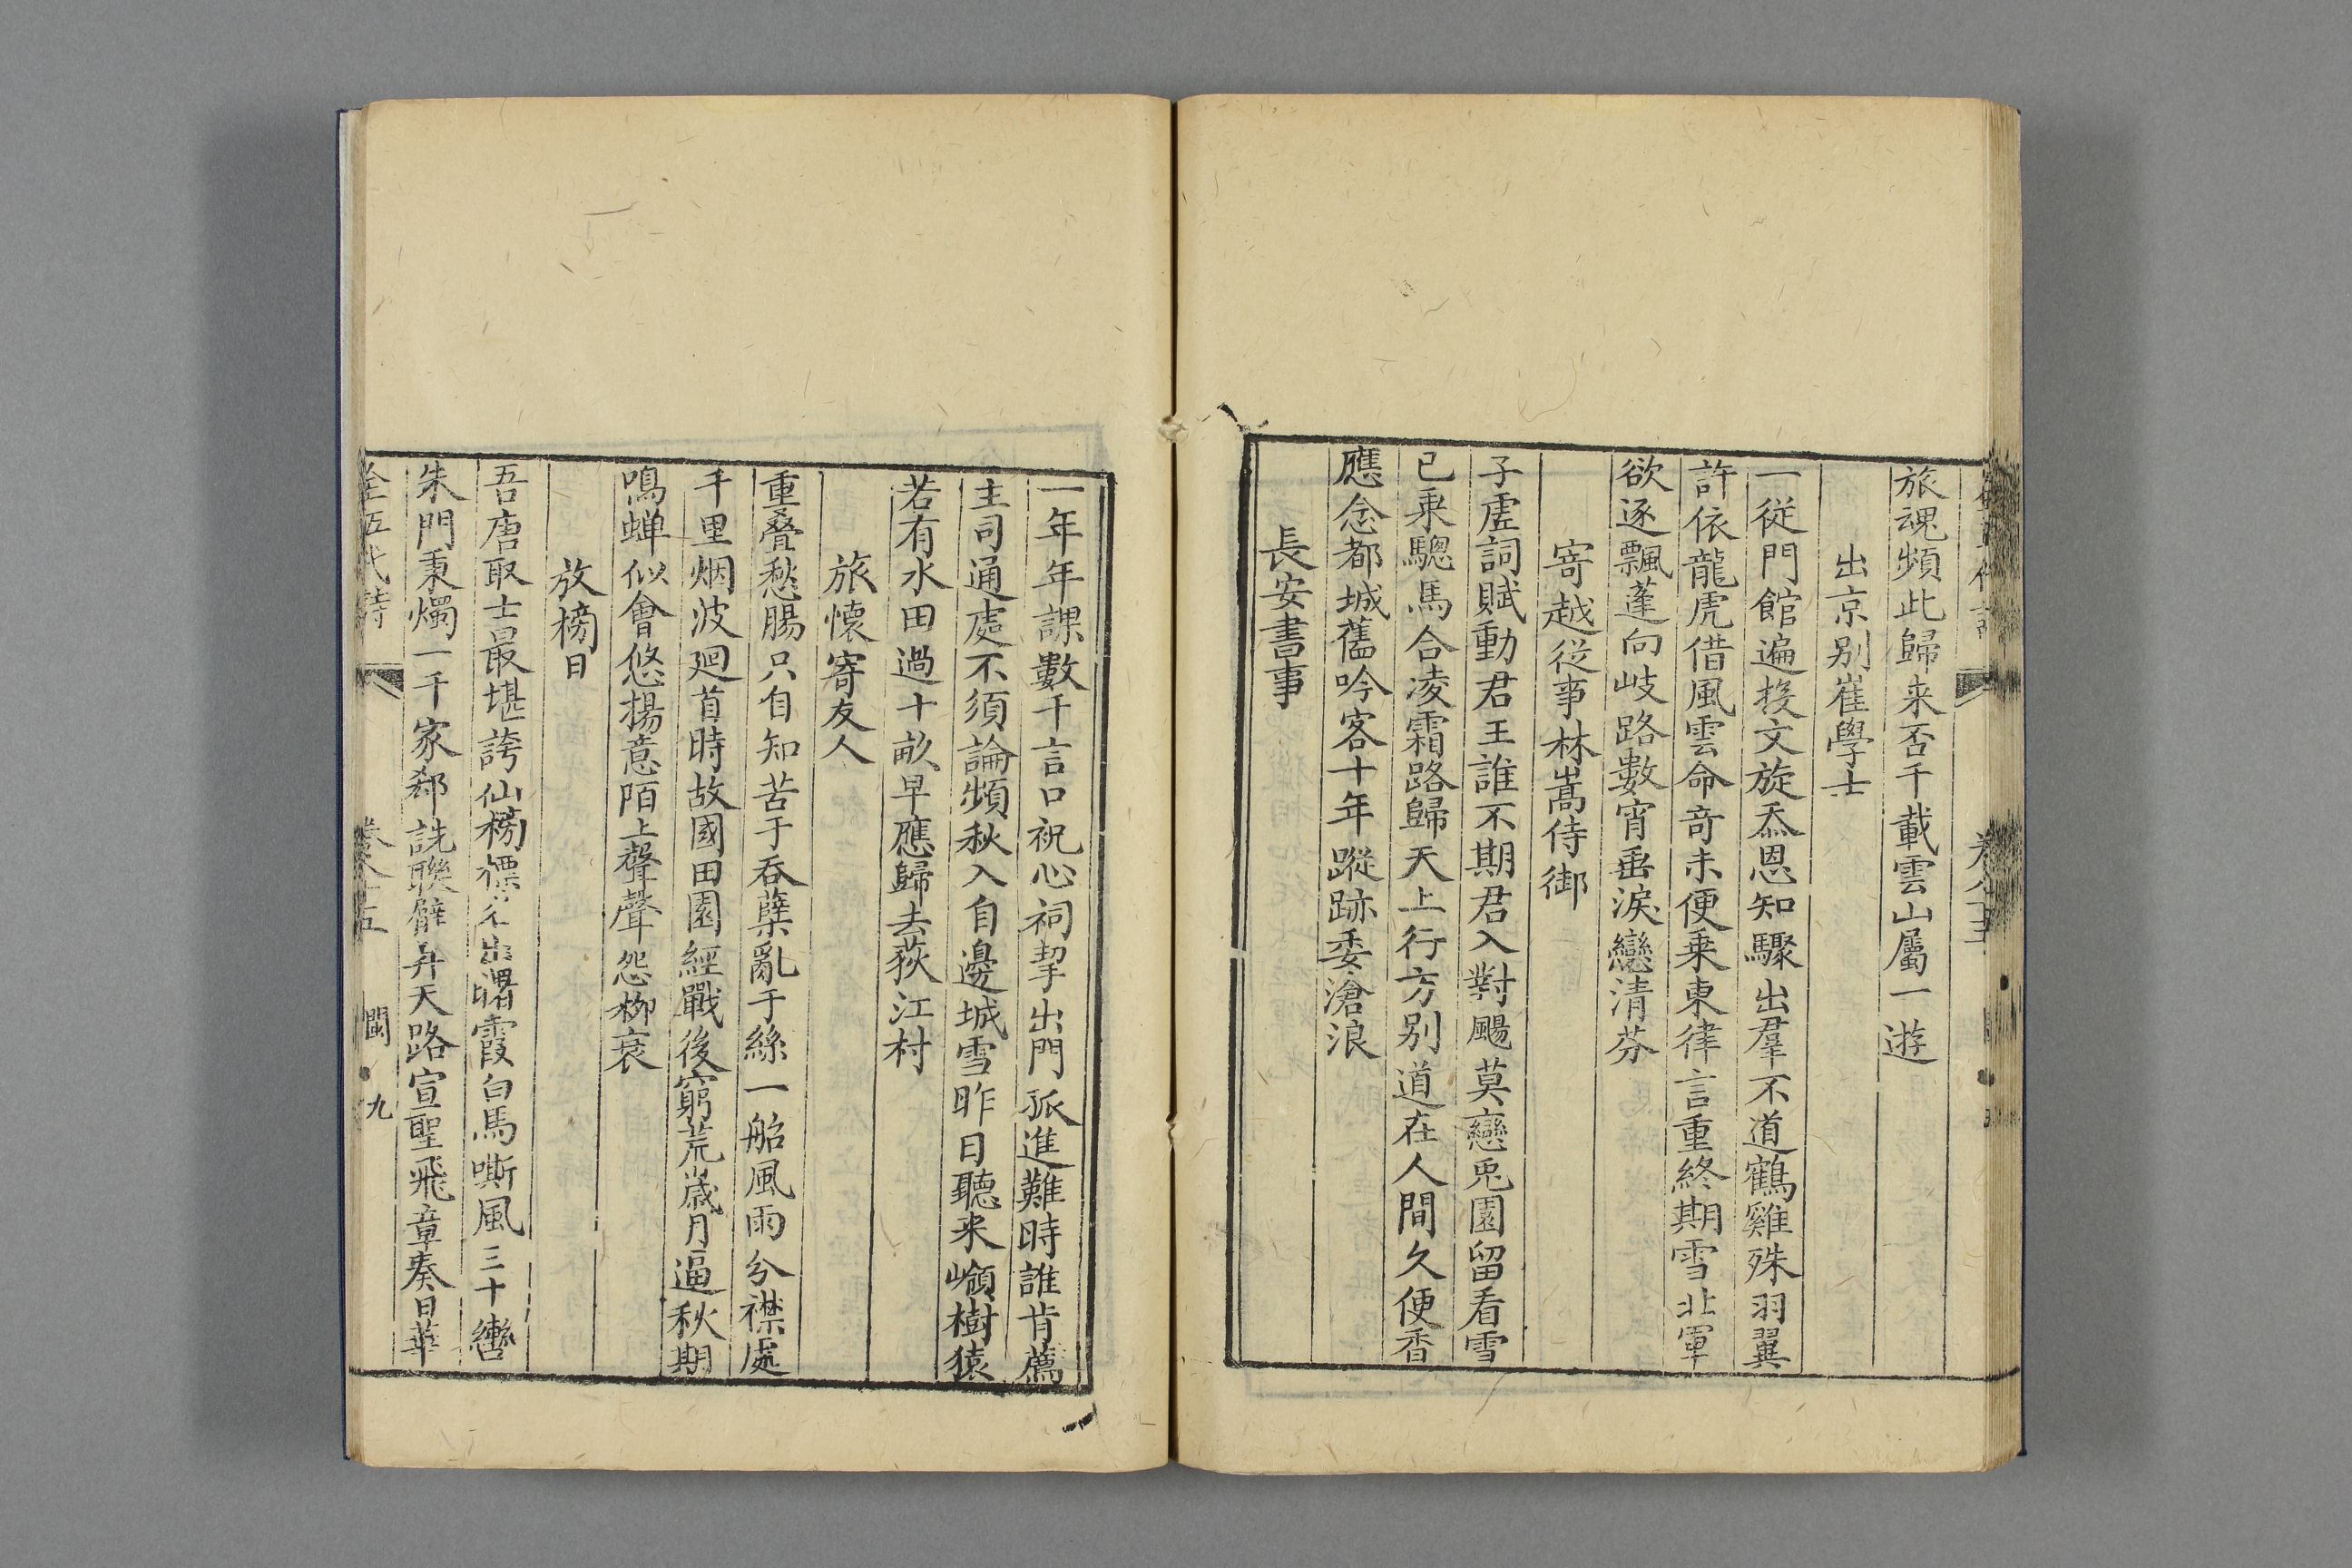 旅魂頻此歸来否千載雲山屬一遊
出京别崔學士
一從門館遍投文旋忝恩知驟出羣不道鶴雞殊羽翼
許依龍虎借風雲命竒未便乗東律言重終期雪北軍
欲逐飄蓬向岐路數宵垂淚戀清芬
寄越從事林嵩侍御
子虛詞賦動君王誰不期君入對颺莫戀兎園留看雪
已乗驄馬合凌霜路歸天上行方别道在人間久便香
應念都城舊吟客十年蹤跡委滄浪
長安書事
一年年課數千言口祝心祠挈出門孤進難時誰肯薦
主司通處不須論頻秋入自邊城雪昨日聽来嶺樹猿
若有水田過十畝早應歸去荻江村
旅懷寄友人
重叠愁腸只自知苦于吞蘖亂于絲一船風雨分襟處
千里烟波廻首時故國田園經戰後窮荒歲月逼秋期
鳴蝉似會悠揚意陌上聲聲怨柳衰
放榜日
吾唐取士最堪誇仙榜標名出曙霞白馬嘶風三十轡
朱門秉燭一千家郄詵聯臂升天路宣聖飛章奏日華
全五代詩
閩 九